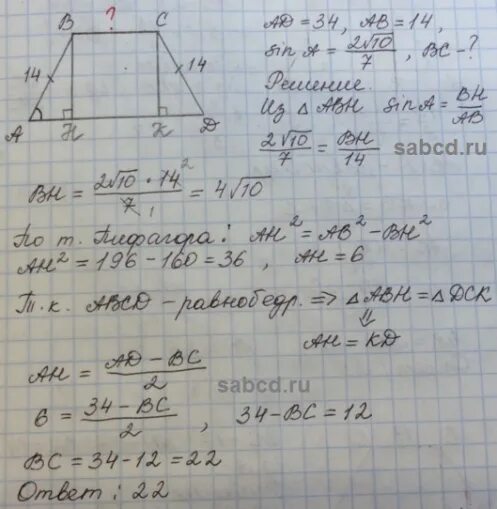 B ? C
14 14
A H K D
AD = 34, AB = 14,
sin A = 2√10/7, BC - ?
Решение.
Из △ABH sin A = BH/AB
2√10/7 = BH/14
sabcd.ru
BH = 2√10 · 14²/7 1 = 4√10
По т. Пифагора: AH² = AB² - BH²
AH² = 196 - 160 = 36, AH = 6
Т.к. ABCD - равнобедр. ⇒ △ABH = △DCK
⇓
AH = KD
AH = AD - BC/2
sabcd.ru
6 = 34 - BC/2, 34 - BC = 12
BC = 34 - 12 = 22
Ответ: 22